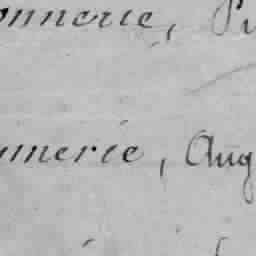 onnerie, Pi
nnerie, Aug